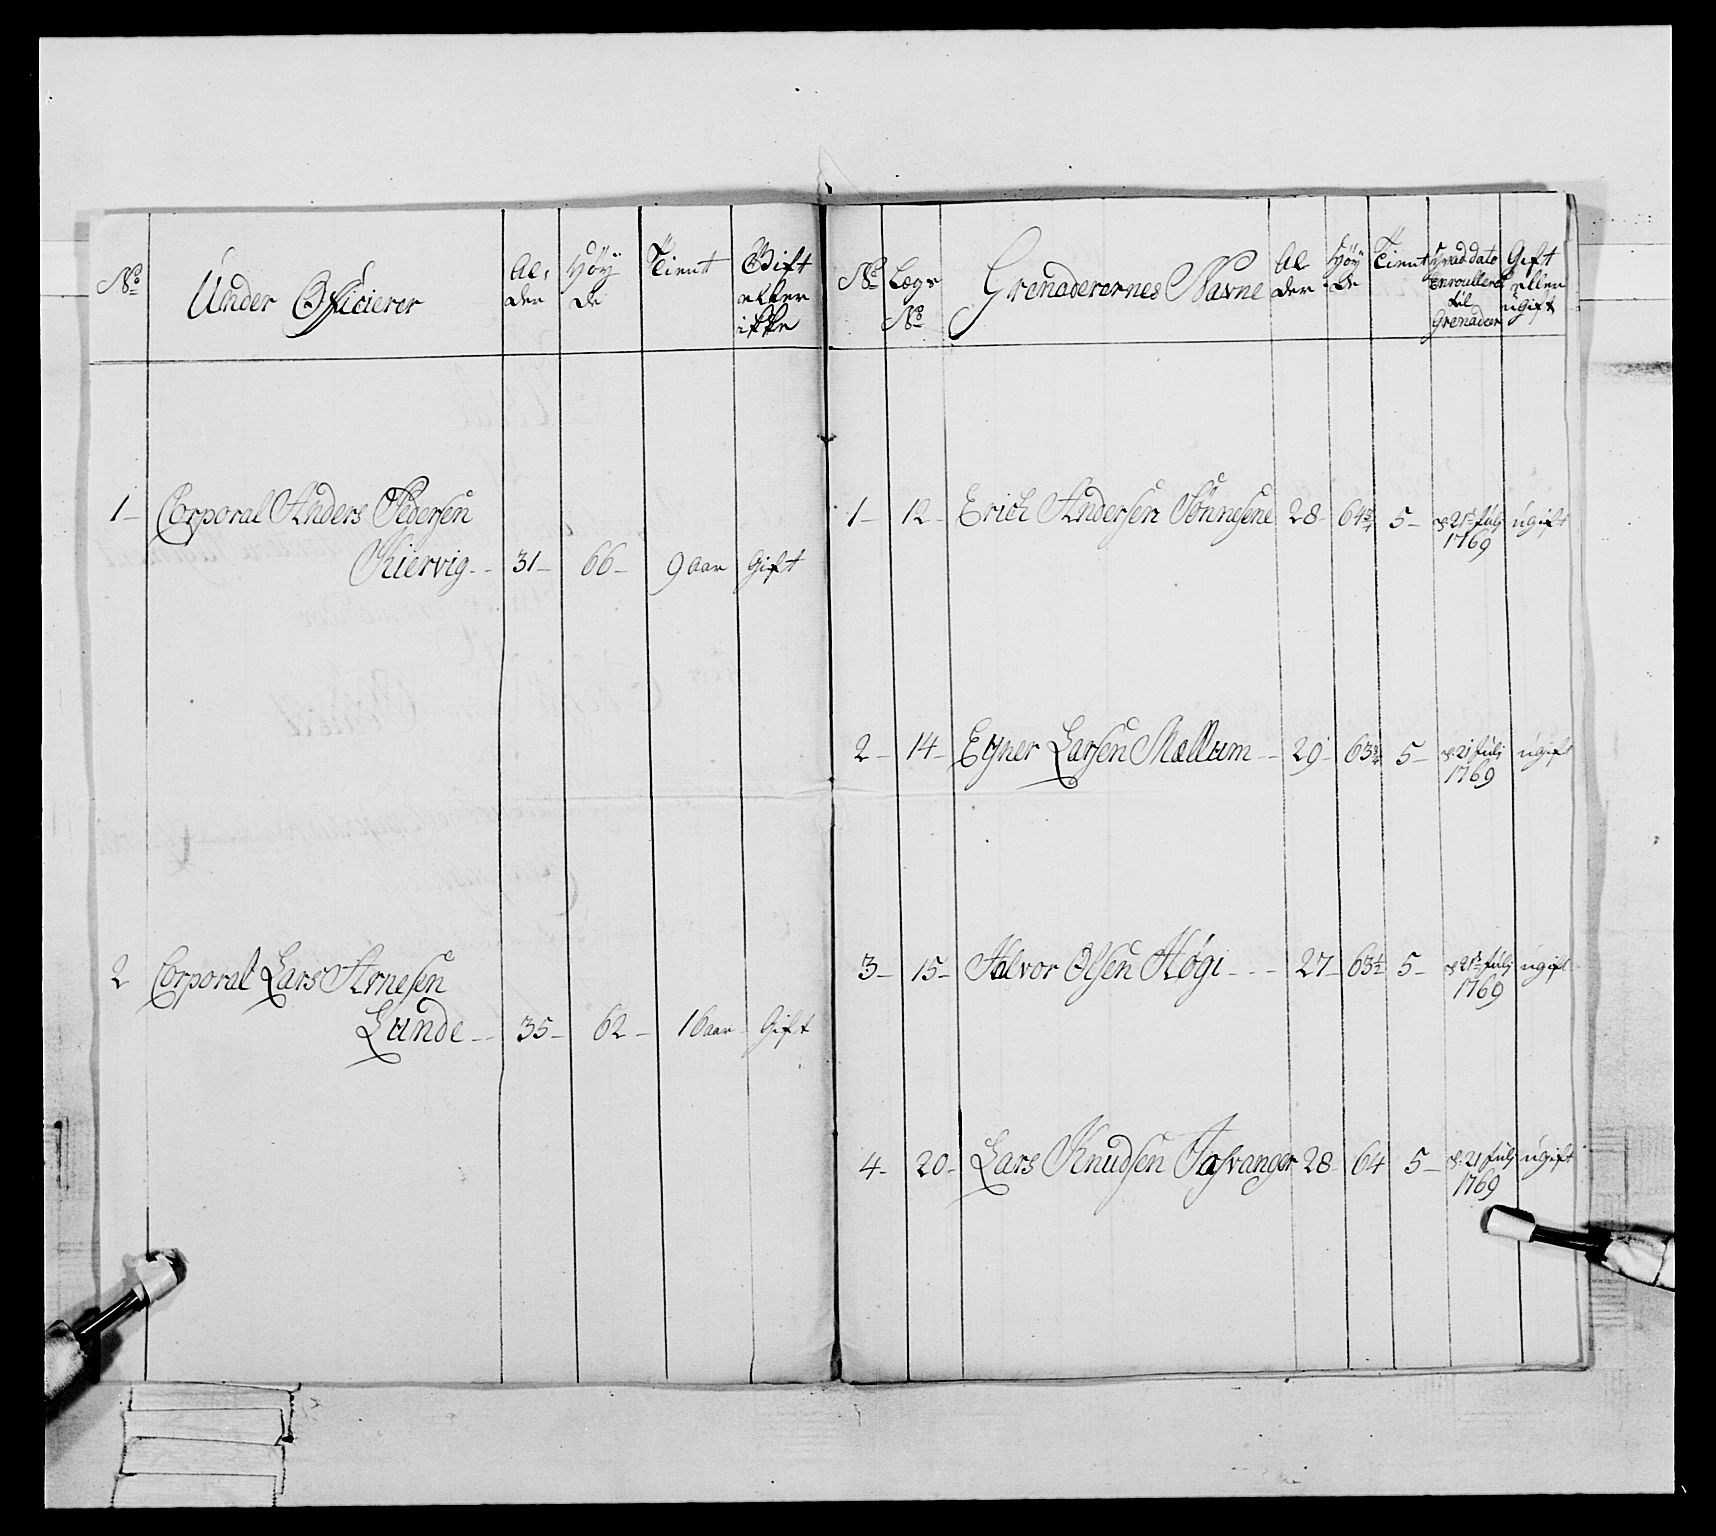 No
Under Officierer
Al,
der
Høy
de
Tient
Gift
eller
ikke
1 Corporal Anders Pedersen
Kiervig 31 66 9 aar Gift
2 Corporal Lars Arnesen
Lunde 35 62 16 aar Gift
No
Lægs
No
Grenaderernes Navne
Al
der
Høy
de
Tient
dato
Enroullered
til
Grenadeer
Gift
eller
ugift
1 12 Erich Andersen Sønnesene 28 64 3/4 5 d. 21 Julj ugift
1769
2 14 Eyner Larsen Mællum 29 63 3/4 5 d. 21 Julj ugift
1769
3 15 Halvor Olsen Høgi 27 63 1/2 5 d. 21 Julj ugift
1769
4 20 Lars Knudsen 28 64 5 d. 21 Julj ugift
1769